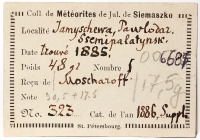 Coll. de Météorites de Jul. de Siemaszko
Localité Janyschewa, Pawlodar.
Ssemipalatynsk.
Date trouvé 1885.
Poids 48 gr Nombre 5
17,5g
Reçu de Moscharoff
Note 30,5 + 17.5
No. 323. Cat. de l'an 1886, Suppl.
St. Pétersbourg.